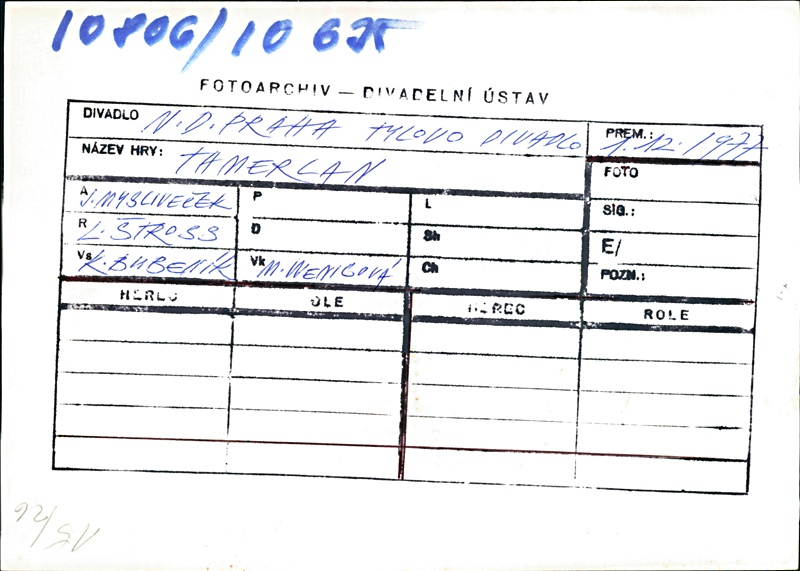 10806/10625
FOTOARCHIV — DIVADELNÍ ÚSTAV
DIVADLO N.D. PRAHA TYLOVO DIVADLO PREM.: 1.12.1977
NÁZEV HRY: TAMERLAN FOTO
A J. MYSLIVEČEK P L SIG.:
R L. ŠTROSS D Sh E/
Vs K. BUBENÍK Vk M. WENIGOVÁ Ch POZN.:
HEREC OLE HEREC ROLE